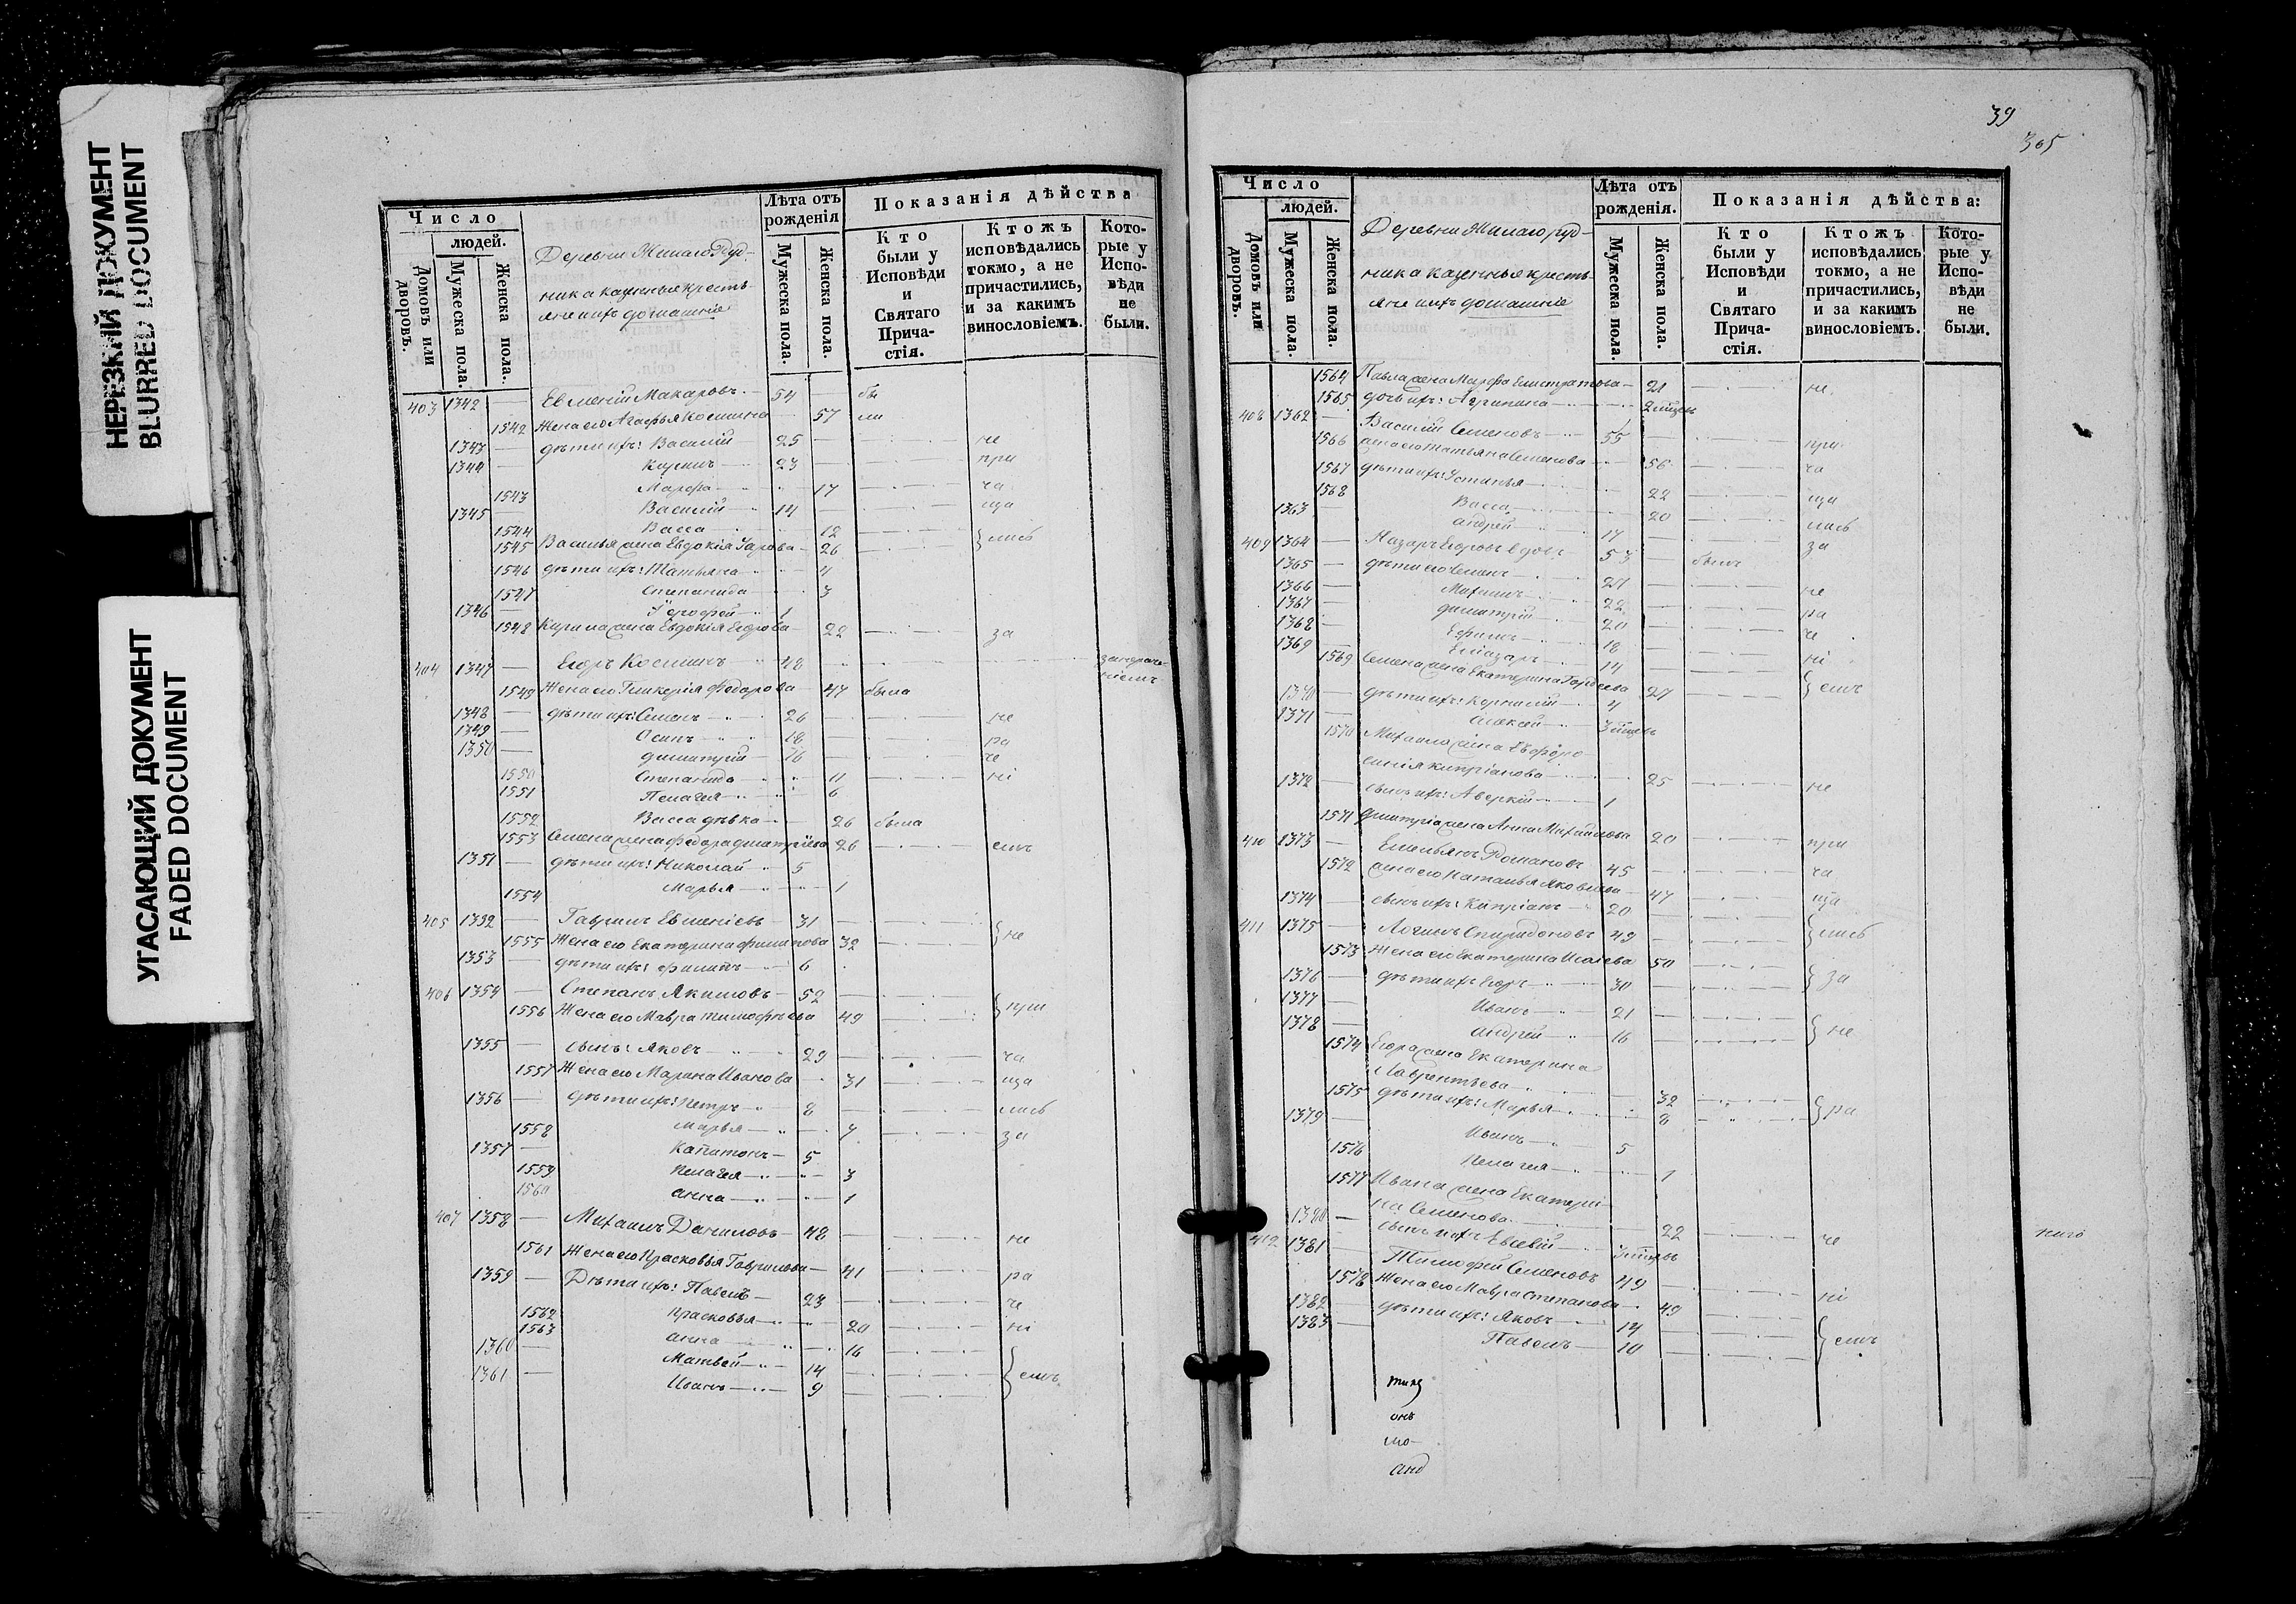 НЕРЕЗКИЙ ДОКУМЕНТ
BLURRED DOCUMENT
УГАСАЮЩИЙ ДОКУМЕНТ
FADED DOCUMENT
Число
людей.
Домовъ или дворовъ.
Мужеска пола.
Женска пола.
Деревни Жилаго Руд-
ника казенные кресть-
яне и ихъ домашніе
Лѣта отъ рожденія
Мужеска пола.
Женска пола.
Показанія дѣйства
Кто были у Исповѣди и Святаго Прича-стія.
Ктожъ исповѣдались токмо, а не причастились, и за какимъ винословіемъ.
Кото-рые у Испо-вѣди не были.
403 1342 — Евмений Макаровъ — 54 — бы
1542 Жена его Агафья Космина — 57 ли
1343 — дѣти ихъ: Василій 25 — не
1344 — Кирилъ 23 — при
1543 Марфа 17 ча
1345 — Василій 14 ща
1544 Васса 12
1545 Василья жена Евдокія Уарова — 26 лись
1546 дѣти ихъ: Татьяна 4
1547 Степанида 3
1346 — 1
1548 Кирила жена Евдокія Егорова — 22 за
404 1347 — Егоръ Косминъ 48
1549 Жена его Гликерія Федорова — 47 была
1348 — дѣти ихъ: Семенъ 26 не
1349 — Осипъ 18 ра
1350 — Димитрий 16 че
1550 Степанида 11 ні
1551 Пелагея 6
1552 Васса дѣвка 26 была
1553 Семена жена Федора Димитріева 26 емъ
1351 — дѣти ихъ: Николай 5
1554 Марья 1
405 1352 — Гаврилъ Евменіевъ — 31
1555 Жена его Екатерина Филипова 32 не
1353 — дѣти ихъ: Филипъ 6
406 1354 — Степанъ Якимовъ — 52
1556 Жена его Мавра Тимофѣева 49 при
1355 — сынъ: Яковъ 29 ча
1557 Жена его Марина Иванова 31 ща
1356 — дѣти ихъ: Петръ 8 лись
1558 Марья 7 за
1357 — Капитонъ — 5
1559 Пелагея 3
1560 Анна 1
407 1358 — Михаилъ Даниловъ — 48 не
1561 Жена его Прасковья Гаврилова — 41 ра
1359 — Дѣти ихъ: Павелъ — 23 че
1562 Прасковья 20 ні
1563 Анна 16
1360 — Матвей 14 емъ
1361 — Иванъ 9
39
305
Число
людей.
Домовъ или дворовъ.
Мужеска пола.
Женска пола.
Деревни Жилаго руд-
ника казенныя кресть-
яне и ихъ домашніе
Лѣта отъ рожденія.
Мужеска пола.
Женска пола.
Показанія дѣйства:
Кто были у Исповѣди и Святаго Прича-стія.
Ктожъ исповѣдались токмо, а не причастились, и за какимъ винословіемъ.
Кото-рые у Испо-вѣди не были.
1564 Павла жена Марфа Елистратова — 21 не
1565 дочь ихъ: Агрипина
408 1362 — Василій Семеновъ 55 при
1566 жена его Татьяна Семенова 56 ча
1567 дѣти ихъ: Устинья 22 ща
1568 Васса 20 лись
1363 — Андрей 17 за
409 1364 — Назаръ Егоровъ вдовъ 53 былъ
1365 — дѣти его Семенъ 27 не
1366 — Михаилъ 22 ра
1367 — Димитрій 20 че
1368 — Ефимъ 18 ні
1369 — Елиазаръ 14
1569 Семена жена Екатерина Гордеева 27 емъ
1370 — дѣти ихъ: Корнилій 4
1371 — Алексей
1570 Михаила жена Евфро
синія Кипріанова 25 не
1372 — сынъ ихъ: Аверкій 1
1571 Димитрія жена Анна Михайлова 20 при
410 1373 — Емельянъ Романовъ 45 ча
1572 жена его Наталья Яковлева — 47 ща
1374 — сынъ ихъ: Кипріанъ 20
411 1375 — Логинъ Спиридоновъ 49 лись
1573 Жена его Екатерина Исаева 50 за
1376 — дѣти ихъ Егоръ 30
1377 — Иванъ 21
1378 — Андрей 16 не
1574 Егора жена Екатерина
Лаврентьева 32
1575 дѣти ихъ: Марья 8 ра
1379 — Иванъ 5
1576 Пелагея 1
1577 Ивана жена Екатери
на Семенова 22 че
1380 — сынъ ихъ Евсевій
412 1381 — Тимофей Семеновъ 49
1578 Жена его Мавра Степанова 49 ні
1382 — дѣти ихъ: Яковъ 14
1383 — Павелъ 10 емъ